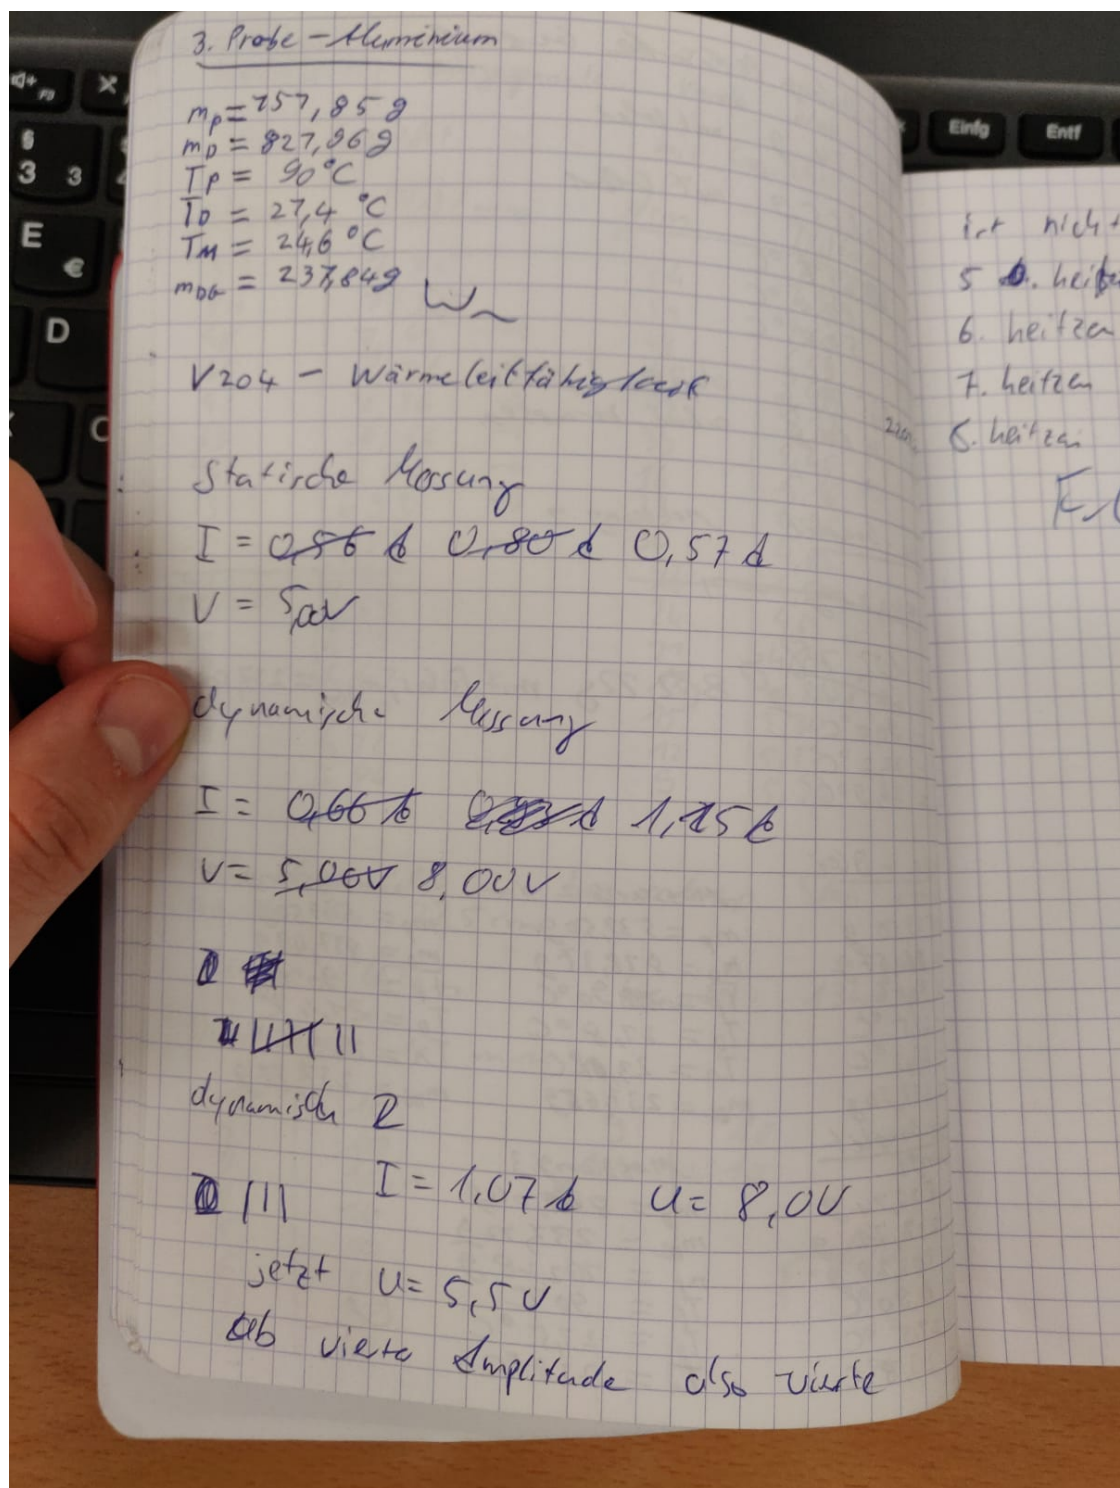 3. Probe - Aluminium
mp = 157,85g
mD = 827,96g
TP = 90°C
TD = 27,4 °C
TM = 24,6 °C
mDG = 237,84g
V204 - Wärmeleitfähigkeit
Statische Messung
I = 0,56 A 0,80 A 0,57 A
V = 5,00V
dynamische Messung
I = 0,66 A 1,15 A
V = 5,00V 8,00V
dynamisch 2
I = 1,07 A U = 8,0V
jetzt U = 5,5V
ab vierte Amplitude also vierte
ist nicht
5. heitzen
6. heitzen
7. heitzen
8. heitzen
F3
3 3
§
E
€
D
Einfg
Entf